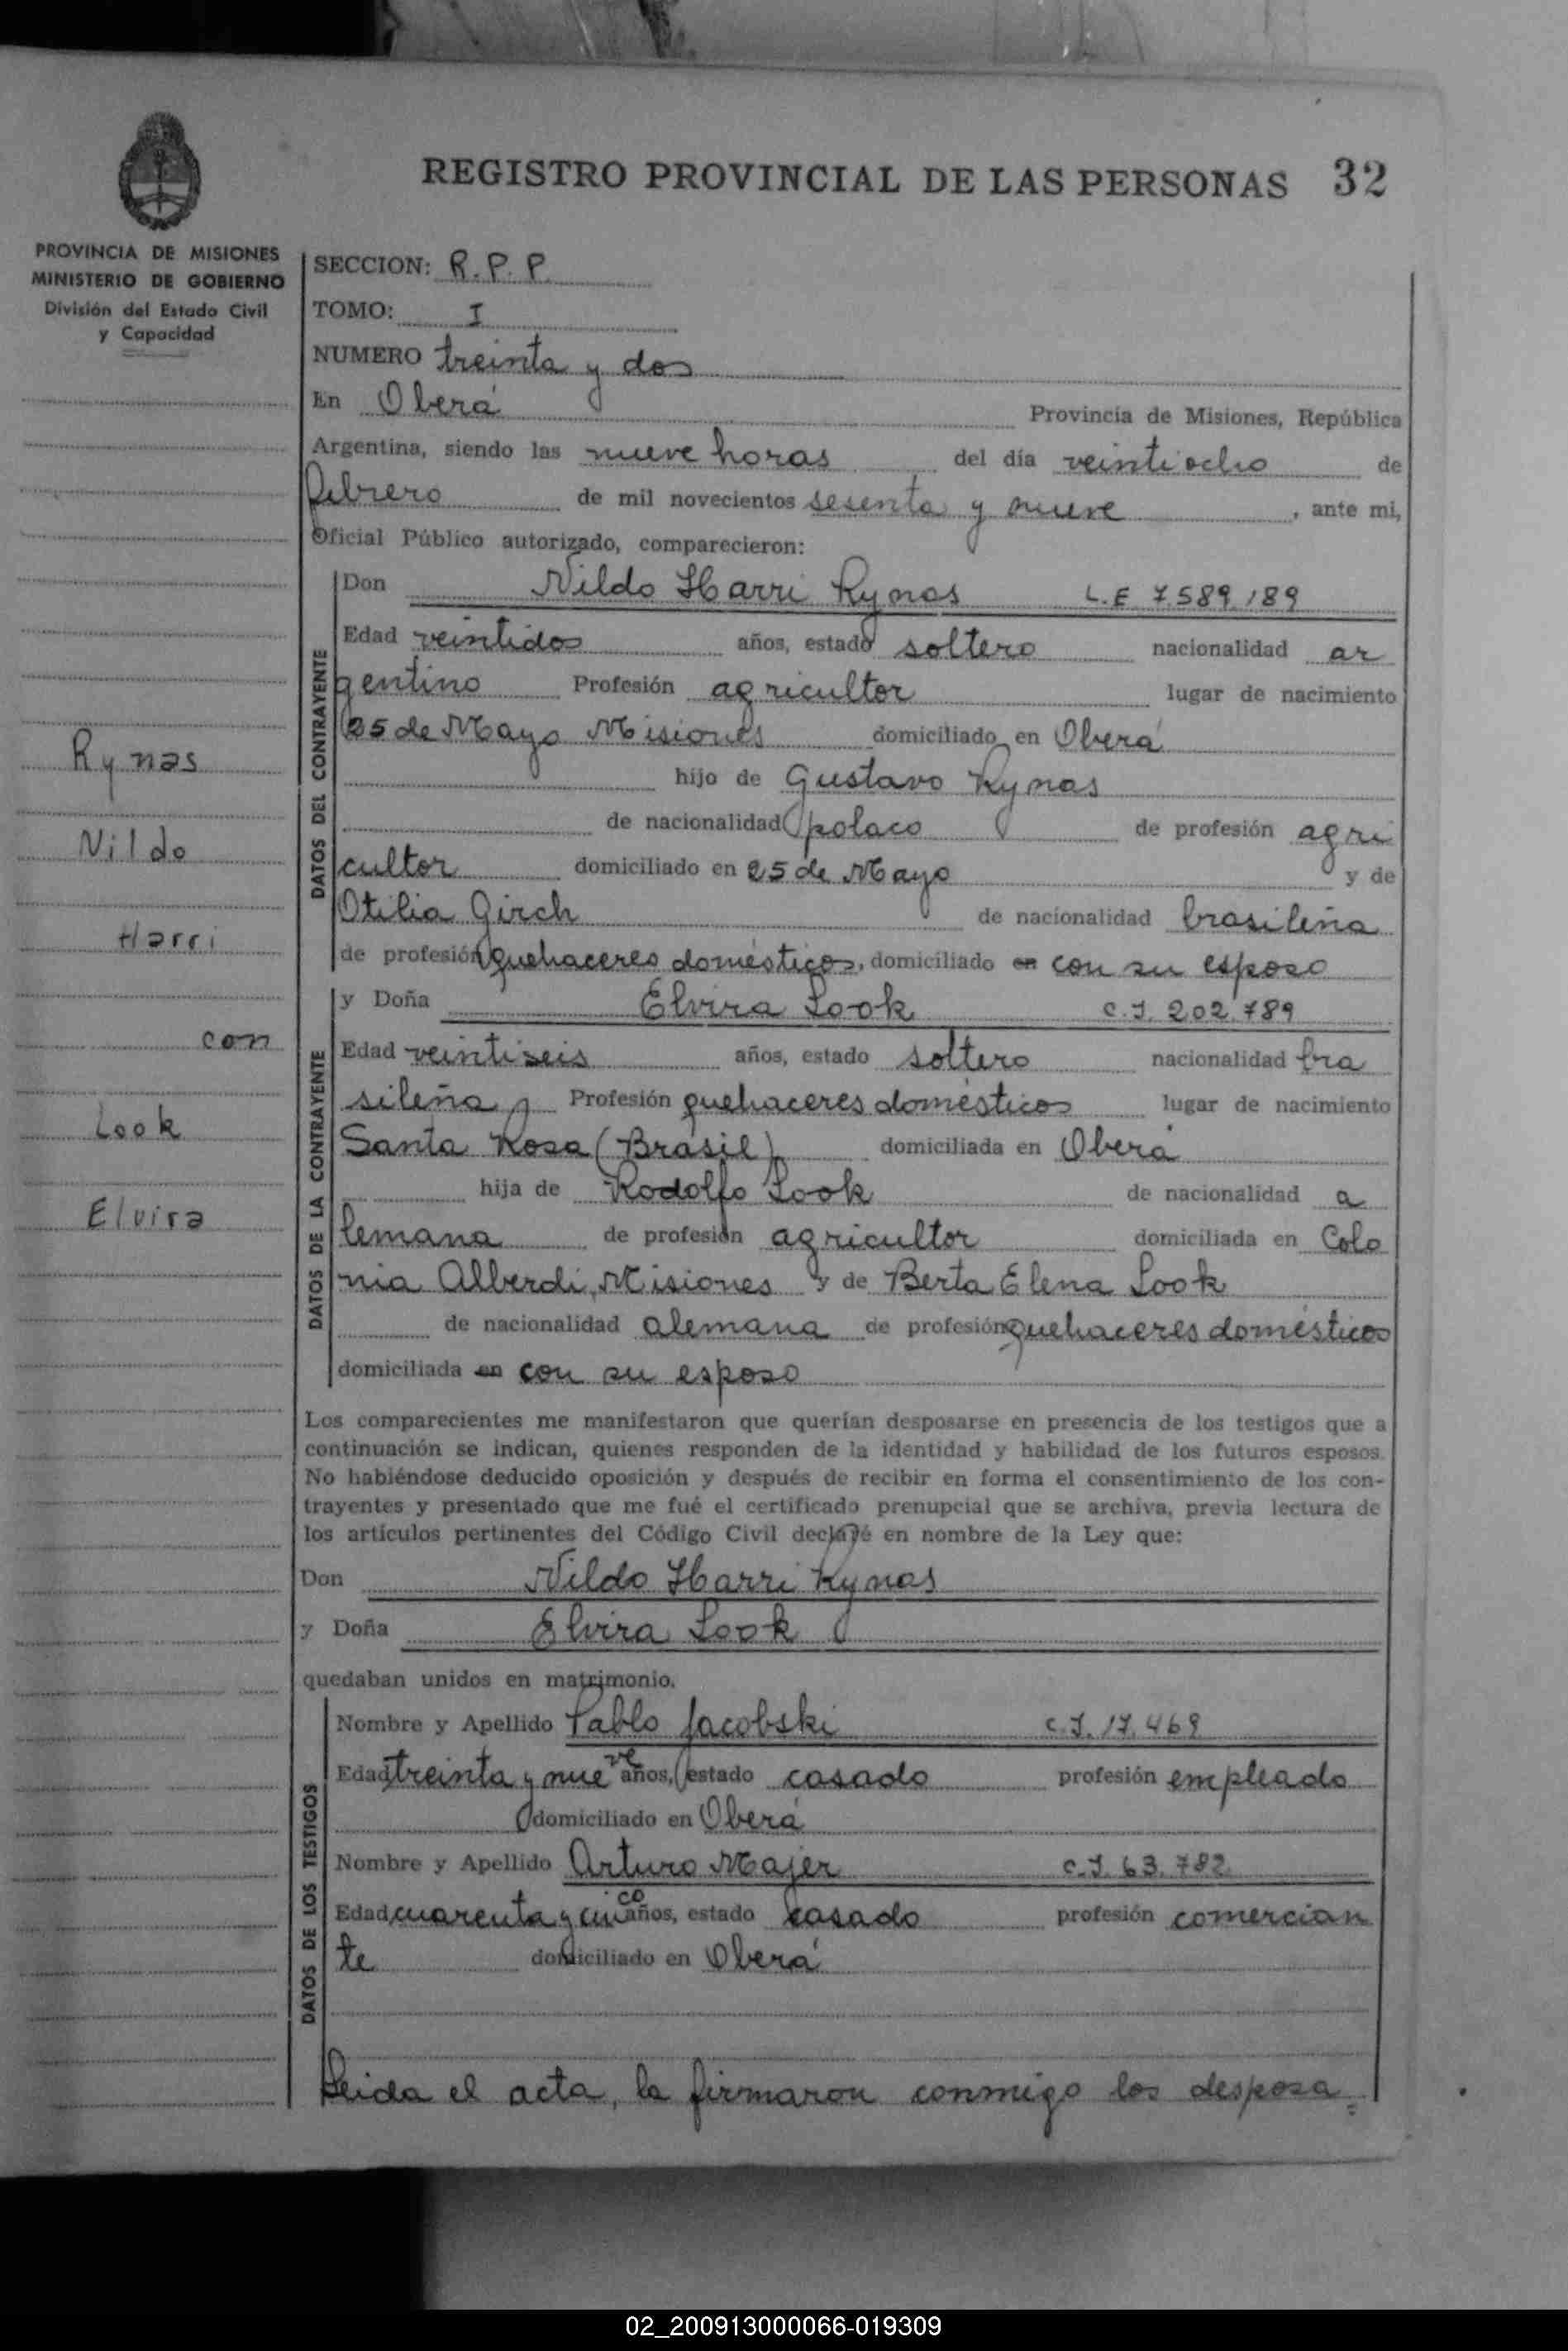 REGISTRO PROVINCIAL DE LAS PERSONAS 32
PROVINCIA DE MISIONES
MINISTERIO DE GOBIERNO
División del Estado Civil
y Capacidad
Rynas
Nildo
Harri
con
Look
Elvira
SECCION: R. P. P.
TOMO: I
NUMERO treinta y dos
En Oberá Provincia de Misiones, República
Argentina, siendo las nueve horas del día veintiocho de
febrero de mil novecientos sesenta y nueve, ante mi,
Oficial Público autorizado, comparecieron:
DATOS DEL CONTRAYENTE
Don Nildo Harri Rynas L.E 7.589.189
Edad veintidos años, estado soltero nacionalidad ar
gentino Profesión agricultor lugar de nacimiento
25 de Mayo Misiones domiciliado en Oberá
hijo de Gustavo Rynas
de nacionalidad polaco de profesión agri
cultor domiciliado en 25 de Mayo y de
Otilia Girch de nacionalidad brasileña
de profesión quehaceres domésticos, domiciliado en con su esposo
DATOS DE LA CONTRAYENTE
y Doña Elvira Look C.I. 202.789
Edad veintiseis años, estado soltero nacionalidad bra
sileña Profesión quehaceres domésticos lugar de nacimiento
Santa Rosa (Brasil) domiciliada en Oberá
hija de Rodolfo Look de nacionalidad a
lemana de profesión agricultor domiciliada en Colo
nia Alberdi, Misiones y de Berta Elena Look
de nacionalidad alemana de profesión quehaceres domésticos
domiciliada en con su esposo
Los comparecientes me manifestaron que querían desposarse en presencia de los testigos que a
continuación se indican, quienes responden de la identidad y habilidad de los futuros esposos.
No habiéndose deducido oposición y después de recibir en forma el consentimiento de los con-
trayentes y presentado que me fué el certificado prenupcial que se archiva, previa lectura de
los artículos pertinentes del Código Civil declaré en nombre de la Ley que:
Don Nildo Harri Rynas
y Doña Elvira Look
quedaban unidos en matrimonio.
DATOS DE LOS TESTIGOS
Nombre y Apellido Pablo Jacobski C.I. 17.469
Edad treinta y nueve años, estado casado profesión empleado
domiciliado en Oberá
Nombre y Apellido Arturo Majer C.I. 63.782
Edad cuarenta y cinco años, estado casado profesión comercian
te domiciliado en Oberá
Leida el acta, la firmaron conmigo los desposa=
02_200913000066-019309